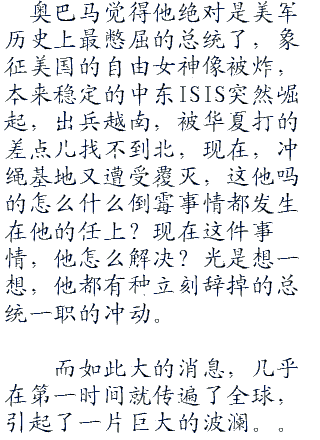 奥巴马觉得他绝对是美军
历史上最憋屈的总统了，象
征美国的自由女神像被炸，
本来稳定的中东ISIS突然崛
起，出兵越南，被华夏打的
差点儿找不到北，现在，冲
绳基地又遭受覆灭，这他吗
的怎么什么倒霉事情都发生
在他的任上？现在这件事
情，他怎么解决？光是想一
想，他都有种立刻辞掉的总
统一职的冲动。
而如此大的消息，几乎
在第一时间就传遍了全球，
引起了一片巨大的波澜。。